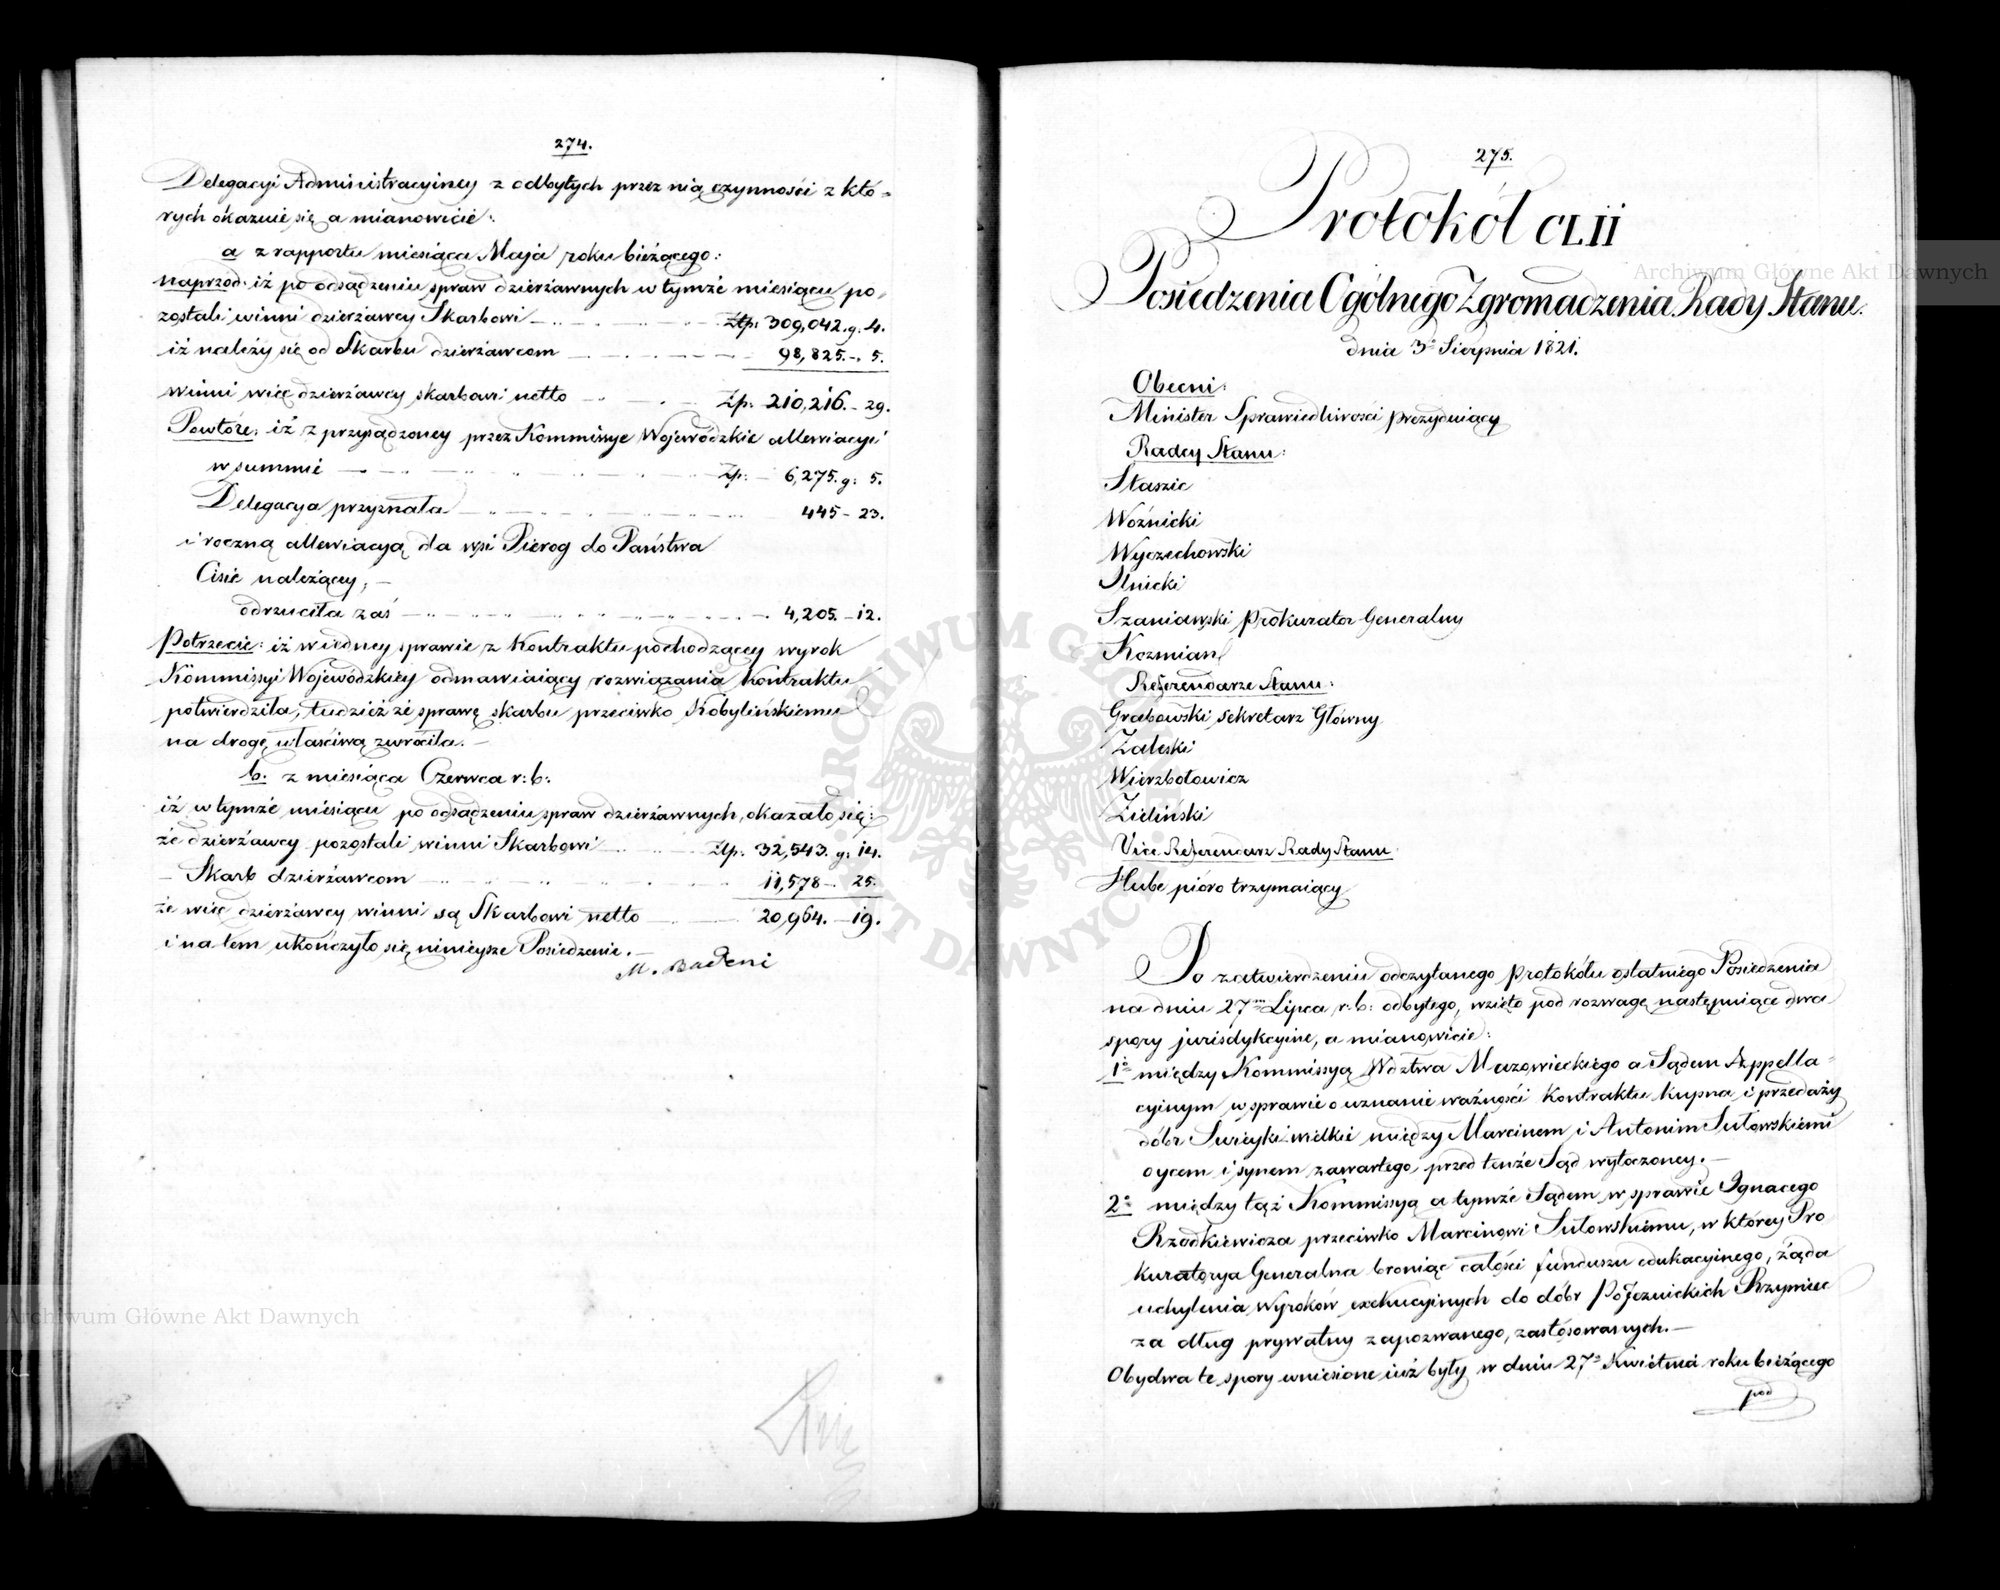 274.
Delegacyi Administracyiney z odbytych przez nią czynności z któ=
rych okazuie się a mianowicie:
a z rapportu miesiąca Maja roku bieżącego:
naprzód: iż po odsądzeniu spraw dzierżawnych w tymże miesiącu po,
zostali winni dzierżawcy Skarbowi Złp: 309,042. g. 4.
iż należy się od Skarbu dzierżawcom 98,825.-. 5.
winni więc dzierżawcy skarbowi netto Zp: 210,216. - 29.
Powtóre: iż z przysądzoney przez Kommissye Wojewódzkie allewiacyi
w summie Zp: 6,275. g: 5.
Delegacya przyznała 445 - 23.
i roczną allewiacyą dla wsi Pierog do Państwa
Cisie należącey; -
odrzuciła zaś 4,205. - 12.
Potrzecie: iż w iedney sprawie z Kontraktu pochodzącey wyrok
Kommissyi Wojewódzkiey odmawiaiący rozwiązania Kontraktu
potwierdziła, tudzież że sprawę skarbu przeciwko Kobylińskiemu
na drogę właściwą zwróciła. -
b. z miesiąca Czerwca r: b:
iż w tymże miesiącu po odsądzeniu spraw dzierżawnych, okazało się:
że dzierżawcy pozostali winni Skarbowi Złp: 32,543. g: 14.
- Skarb dzierżawcom 11,578 -. 25.
że więc dzierżawcy winni są Skarbowi netto 20,964. - 19.
i na tem ukończyło się ninieysze Posiedzenie. -
M. Badeni
275.
Protokół CLII
Posiedzenia Ogólnego Zgromadzenia Rady Stanu.
dnia 3o Sierpnia 1821.
Obecni:
Minister Sprawiedliwości prezyduiący
Radcy Stanu:
Staszic
Woźnicki
Wyczechowski
Ilnicki
Szaniawski Prokurator Generalny
Kozmian
Referendarze Stanu:
Grabowski Sekretarz Główny
Zaleski
Wierzbołowicz
Zieliński
Vice Referendarz Rady Stanu
Hube pióro trzymaiący
Po zatwierdzeniu odczytanego Protokółu ostatniego Posiedzenia
na dniu 27m Lipca r: b: odbytego, wzięto pod rozwagę następuiące dwa
spory jurisdykcyine, a mianowicie:
1o między Kommissyą Wdztwa Mazowieckiego a Sądem Appella=
cyinym w sprawie o uznanie ważności Kontraktu kupna i przedaży
dóbr wielkie między Marcinem i Antonim Sutowskiemi
oycem i synem zawartego, przed tenże Sąd wytoczoney. -
2o między taż Kommissyą a tymże Sądem w sprawie Ignacego
Rzodkiewicza przeciwko Marcinowi Sutowskiemu, w którey Pro
kuratorya Generalna broniąc całości funduszu edukacyinego, żąda
uchylenia Wyroków exekucyinych do dóbr PoJeznickich
za dług prywatny zapozwanego, zastósowanych. -
Obydwa te spory wniesione iuż były w dniu 27o Kwietnia roku bieżącego
pod
Archiwum Główne Akt Dawnych
Archiwum Główne Akt Dawnych
ARCHIWUM GŁÓWNE AKT DAWNYCH